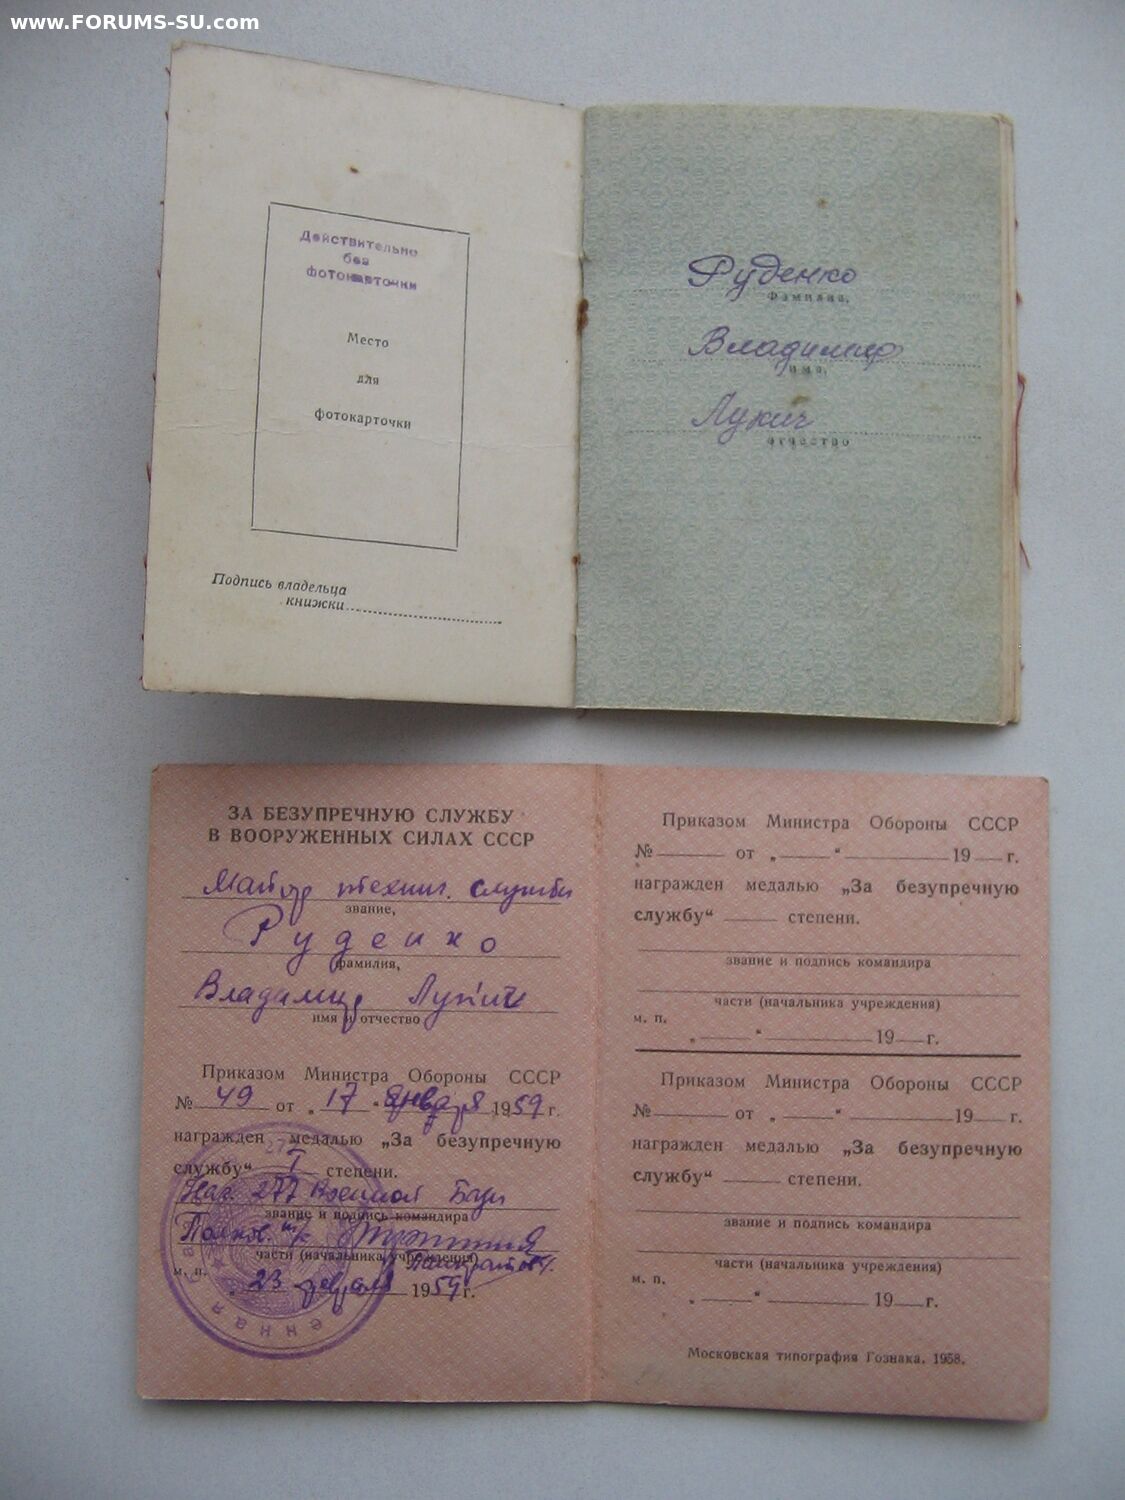 www.FORUMS-SU.com
Действительно
без
фотокарточки
Место
для
фотокарточки
Подпись владельца
книжки
Руденко
Фамилия,
Владимир
имя,
Лукич
отчество
ЗА БЕЗУПРЕЧНУЮ СЛУЖБУ
В ВООРУЖЕННЫХ СИЛАХ СССР
Майор технич. службы
звание,
Руденко
фамилия,
Владимир Лукич
имя и отчество
Приказом Министра Обороны СССР
№ 49 от „17“ января 1959 г.
награжден медалью „За безупречную
службу“ I степени.
Нач. 277 Военной Базы
звание и подпись командира
Полков. т/с
части (начальника учреждения)
м. п.
„23 февраля 1959 г.
енная
Приказом Министра Обороны СССР
№ от „ “ 19 г.
награжден медалью „За безупречную
службу“ степени.
звание и подпись командира
части (начальника учреждения)
м. п.
„ “ 19 г.
Приказом Министра Обороны СССР
№ от „ “ 19 г.
награжден медалью „За безупречную
службу“ степени.
звание и подпись командира
части (начальника учреждения)
м. п.
„ “ 19 г.
Московская типография Гознака. 1958.